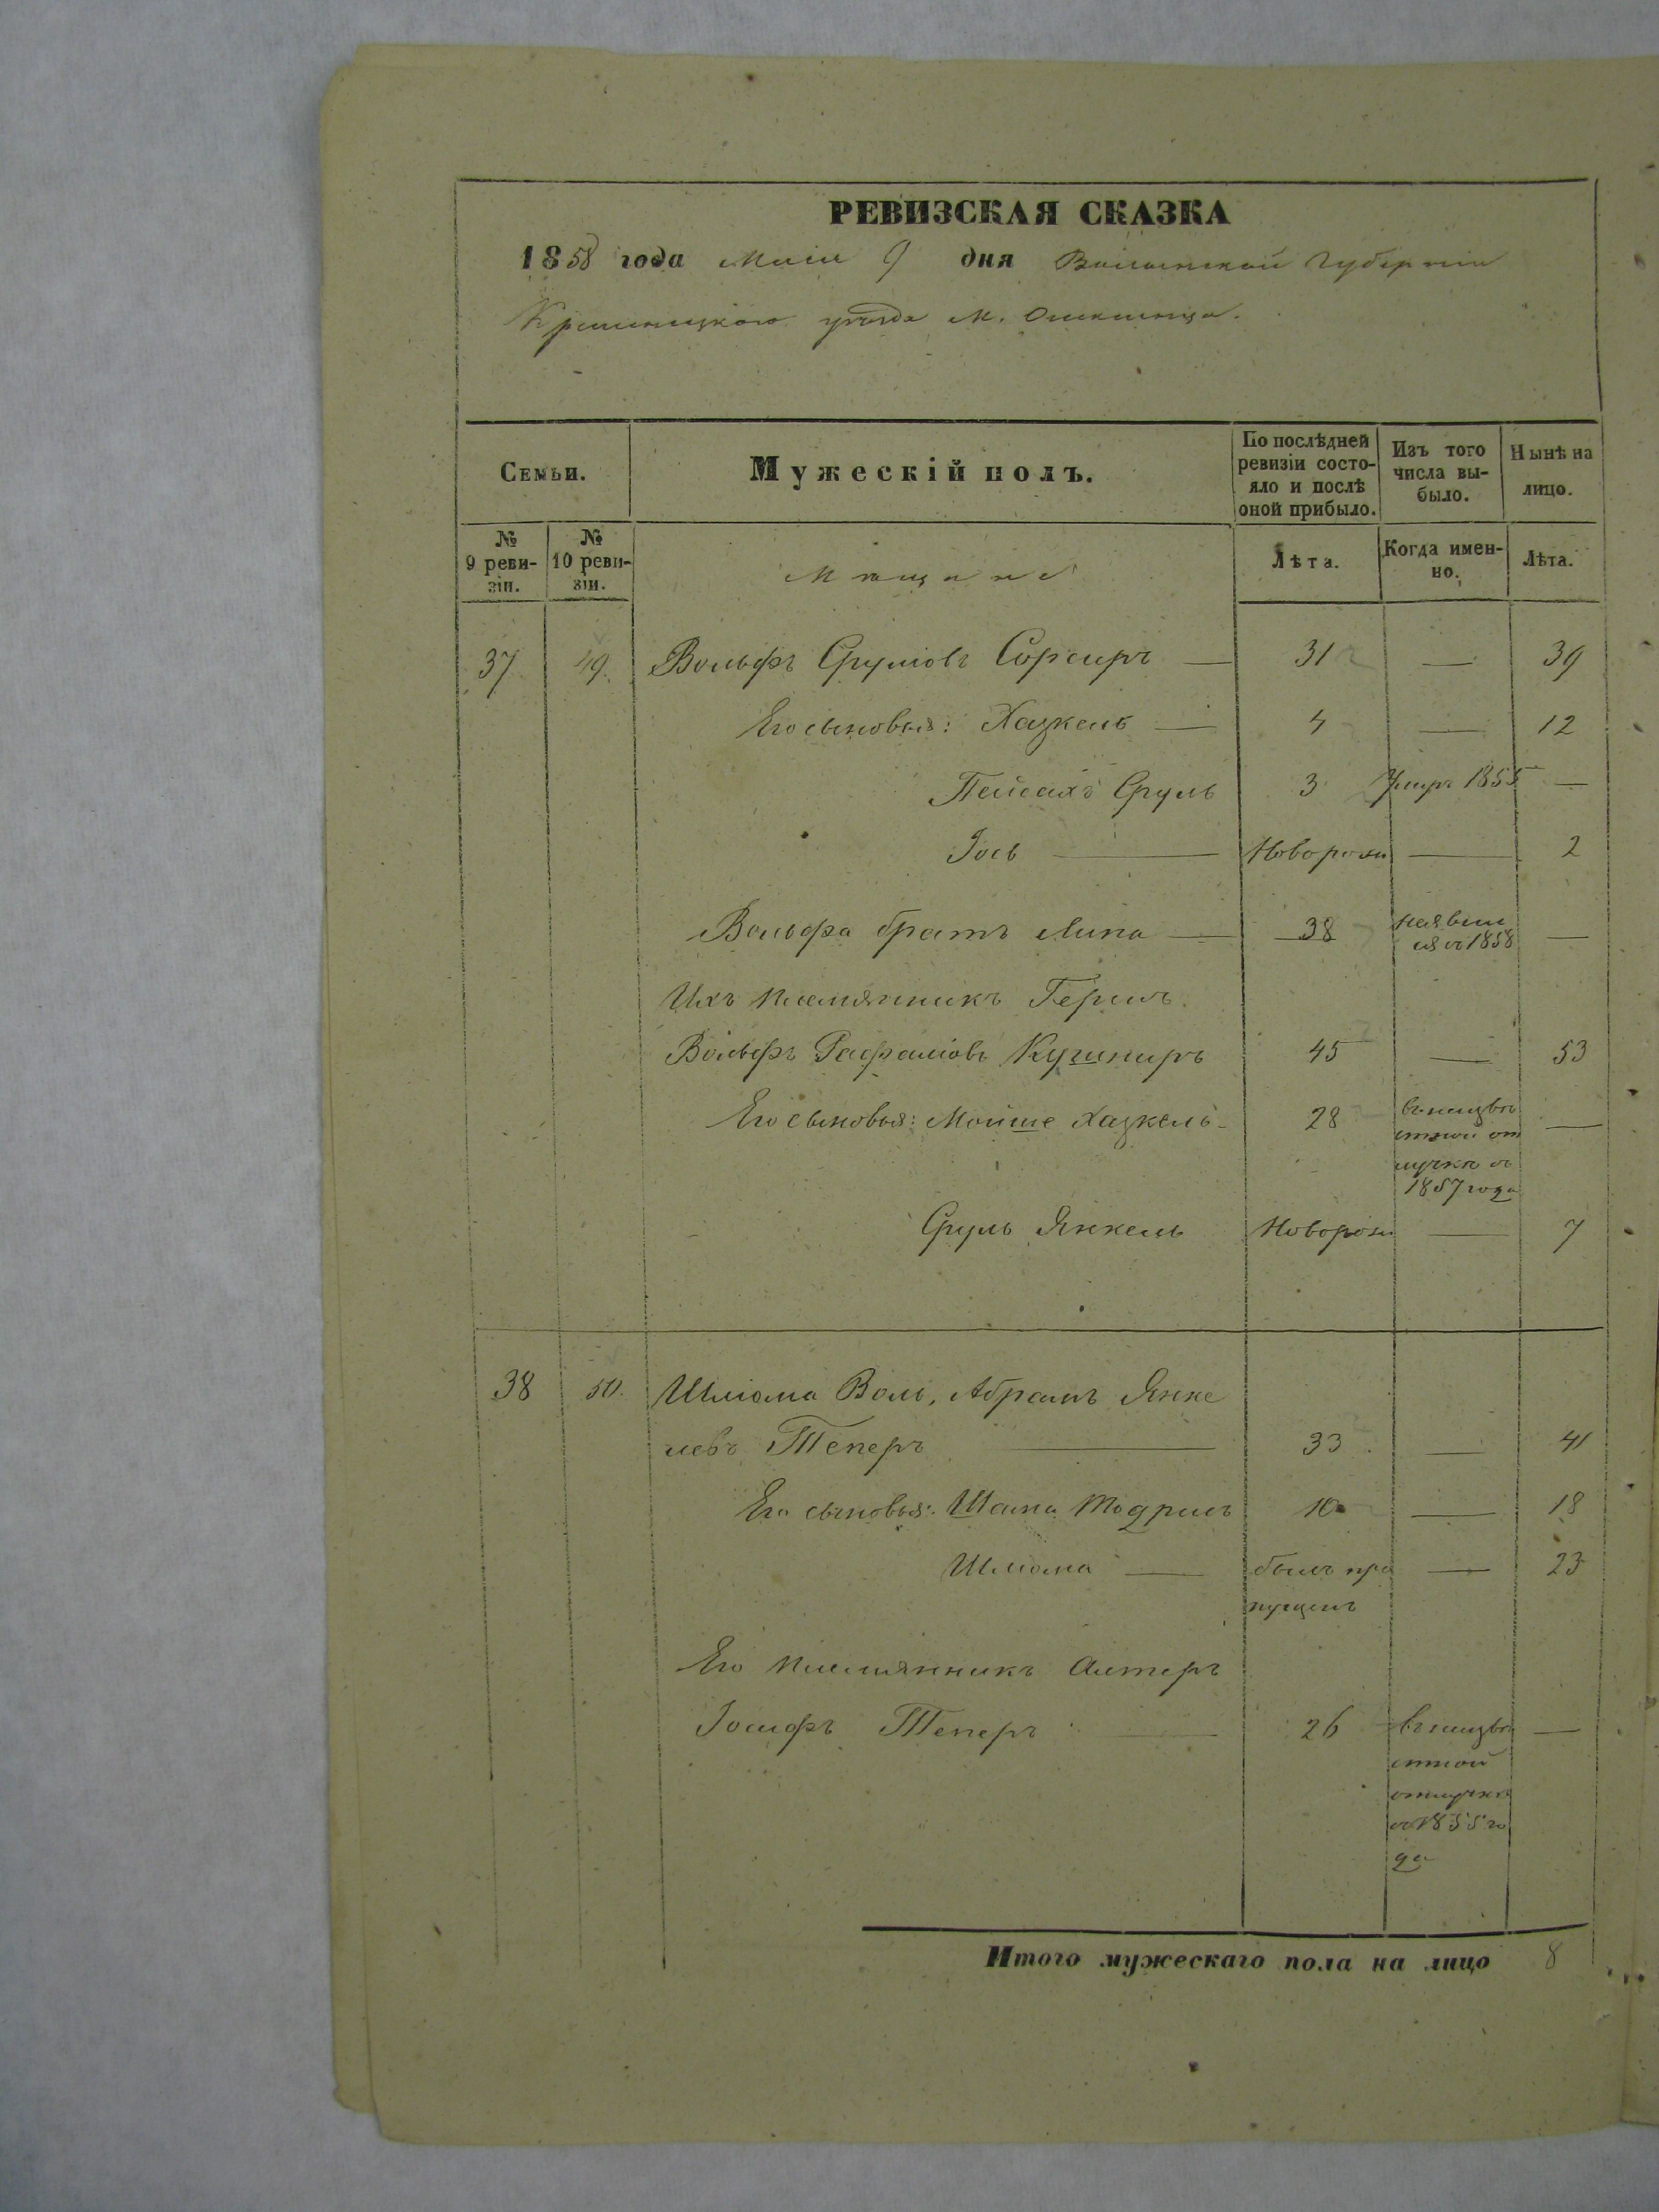 РЕВИЗСКАЯ СКАЗКА
1858 года Маія 9 дня Волынской Губерніи
Кременецкого уѣзда М. Олексинца.
Семьи. Мужескій полъ. По послѣдней ревизіи состояло и послѣ оной прибыло. Изъ того числа выбыло. Нынѣ на лицо.
№ 9 ревизіи. № 10 ревизіи. Мѣщане Лѣта. Когда именно. Лѣта.
37 49. Вольфъ Сруліовъ — 31 — 39
Его сыновья: Хазкель — 4 — 12
Пейсахъ Сруль 3 Умеръ 1855 —
Іось — Новорож — 2
Вольфа братъ Липа — 38 неявил
ся съ 1858 —
Ихъ племянникъ Гершъ
Вольфъ Рафаліовъ Кушниръ 45 — 53
Его сыновья: Мойше Хазкель 28 въ неизвѣ
стной от
лучкѣ съ
1857 года —
Сруль Янкель Новорож — 7
38 50. Шліома Воль, Абрамъ Янке
левъ Теперъ — 33 — 41
Его сыновья: Шама Тодрисъ 10 — 18
Шліома — былъ про
пущенъ — 23
Его племянникъ Алтеръ
Іосифъ Теперъ — 26 въ неизвѣ
стной
отлучкѣ
съ 1855 го
да —
Итого мужескаго пола на лицо 8